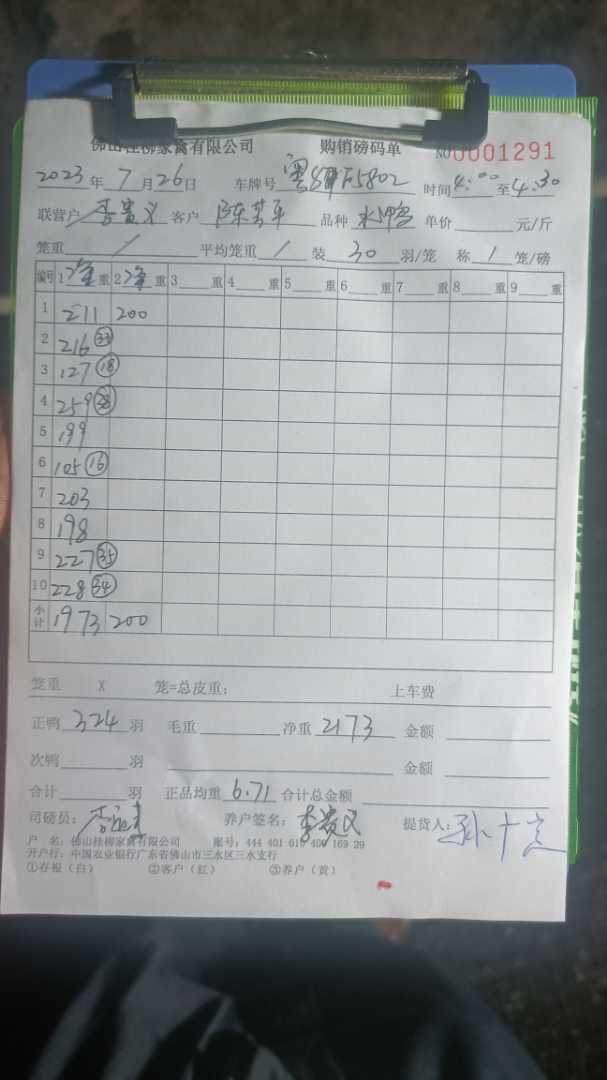 佛山桂柳家禽有限公司 购销磅码单 NO 0001291
2023年7月26日 车牌号 F5802 时间4:00至4:30
联营户 李贵义 客户 品种 水鸭 单价 元/斤
笼重 / 平均笼重 / 装 30 羽/笼 称 1 笼/磅
编号 1 净重 2 净重 3 重 4 重 5 重 6 重 7 重 8 重 9 重
1 211 200
2 216 33
3 127 18
4 259 38
5 199
6 105 16
7 203
8 198
9 227 35
10 228 34
小计 1973 200
笼重 X 笼=总皮重: 上车费
正鸭 324 羽 毛重 净重 2173 金额
次鸭 羽 金额
合计 羽 正品均重 6.71 合计总金额
司磅员: 养户签名: 李贵义 提货人:
户 名: 佛山桂柳家禽有限公司 账号: 444 401 010 400 169 29
开户行: 中国农业银行广东省佛山市三水区三水支行
①存根（白） ②客户（红） ③养户（黄）